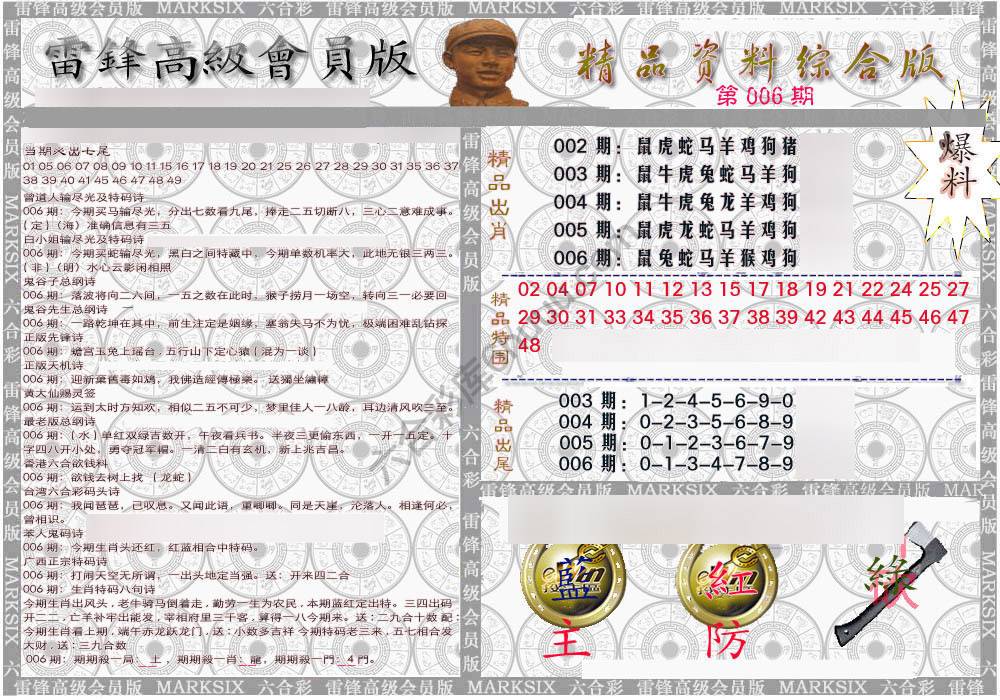 雷锋高级会员版 MARKSIX 六合彩 雷锋高级会员版 MARKSIX 六合彩 雷锋高级会员版 MARKSIX 六合彩 雷锋
雷鋒高級會員版
精品资料综合版
第 006 期
爆料
当期必出七尾
01 05 06 07 08 09 10 11 15 16 17 18 19 20 21 25 26 27 28 29 30 31 35 36 37
38 39 40 41 45 46 47 48 49
曾道人输尽光及特码诗
006 期：今期买马输尽光，分出七数看九尾，捧走二五切断八，三心二意难成事。
{定}（海）准确信息有三五
白小姐输尽光及特码诗
006 期：今期买蛇输尽光，黑白之间特藏中，今期单数机率大，此地无银三两三。
{非}（明）水心云影闲相照
鬼谷子总纲诗
006 期：落波将向二六间，一五之数在此时，猴子捞月一场空，转向三一必要回
鬼谷先生总纲诗
006 期：一路乾坤在其中，前生注定是姻缘，塞翁失马不为忧，极端困难乱钻探
正版先锋诗
006 期：蟾宫玉兔上瑶台，五行山下定心猿{混为一谈}
正版天机诗
006 期：迎新棄舊毒如鴆，我佛造經傳極樂。送獨坐
黄大仙赐灵签
006 期：运到太时方知欢，相似二五不可少，梦里佳人一八龄，耳边清风吹三至。
最老版总纲诗
006 期：（水）单红双绿吉数开，午夜看兵书。半夜三更偷东西，一开一五定。十
字四八开小处，勇夺冠军帽。一清二白有玄机，新上兆吉昌。
香港六合欲钱料
006 期：欲钱去树上找 （龙蛇）
台湾六合彩码头诗
006 期：我闻琵琶，已叹息。又闻此语，重唧唧。同是天崖，沦落人。相逢何必，
曾相识。
笨人鬼码诗
006 期：今期生肖头还红，红蓝相合中特码。
广西正宗特码诗
006 期：打闹天空无所谓，一出头地定当强。送：开来四二合
006 期：生肖特码八句诗
今期生肖出风头，老牛骑马倒着走，勤劳一生为农民，本期蓝红定出特。三四出码
开二二，亡羊补牢出能发，宰相府里三千客，算得一八今期来。送：二九合十数 配：
今期生肖看上期，端午赤龙跃龙门，送：小数多吉祥 今期特码老三来，五七相合发
大财，送：三九合数
006 期：期期殺一局：土，期期殺一肖：龍，期期殺一門：4 門。
精品出肖
002 期：鼠虎蛇马羊鸡狗猪
003 期：鼠牛虎兔蛇马羊狗
004 期：鼠牛虎兔龙羊鸡狗
005 期：鼠虎龙蛇马羊鸡狗
006 期：鼠兔蛇马羊猴鸡狗
精品特围
02 04 07 10 11 12 13 15 17 18 19 21 22 24 25 27
29 30 31 33 34 35 36 37 38 39 42 43 44 45 46 47
48
精品出尾
003 期：1-2-4-5-6-9-0
004 期：0-2-3-5-6-8-9
005 期：0-1-2-3-6-7-9
006 期：0-1-3-4-7-8-9
雷锋高级会员版 MARKSIX 六合彩 雷锋高级会员版 MAR
藍
紅
綠
主
防
雷锋高级会员版 MARKSIX 六合彩 雷锋高级会员版 MARKSIX 六合彩 雷锋高级会员版 MARKSIX 六合彩 雷锋